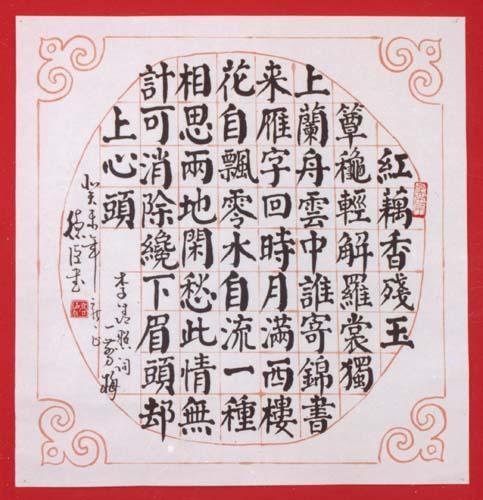 紅藕香殘玉
簟穐輕解羅裳獨
上蘭舟雲中誰寄錦書
来雁字回時月滿西樓
花自飄零水自流一種
相思兩地閑愁此情無
計可消除纔下眉頭却
上心頭
李清照詞
一剪梅
癸未年
書